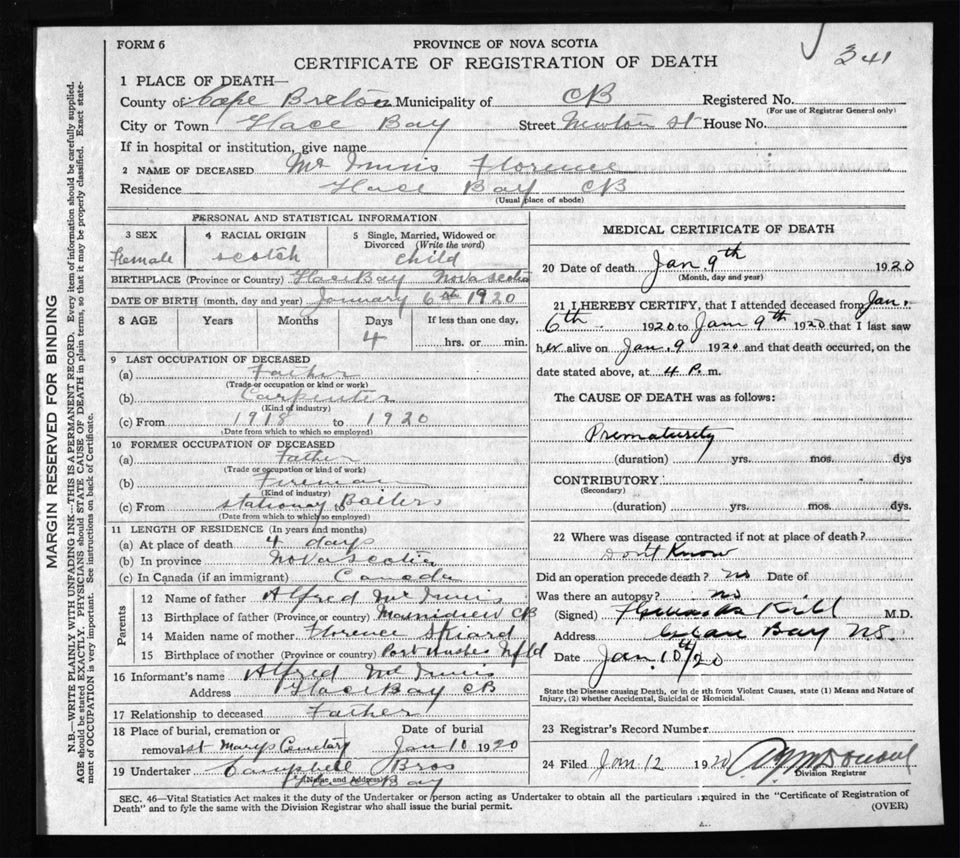 341
FORM 6
PROVINCE OF NOVA SCOTIA
CERTIFICATE OF REGISTRATION OF DEATH
1 PLACE OF DEATH—
County of Cape Breton Municipality of CB Registered No.
(For use of Registrar General only)
City or Town Glace Bay Street Newton St House No.
If in hospital or institution, give name
2 NAME OF DECEASED Mc Innis Florence
Residence Glace Bay CB
(Usual place of abode)
PERSONAL AND STATISTICAL INFORMATION
3 SEX 4 RACIAL ORIGIN 5 Single, Married, Widowed or Divorced (Write the word)
Female scotch child
BIRTHPLACE (Province or Country) Glace Bay Nova scotia
DATE OF BIRTH (month, day and year) January 6th 1920
8 AGE Years Months Days If less than one day,
4 hrs. or min.
9 LAST OCCUPATION OF DECEASED
(a) Father
(Trade or occupation or kind or work)
(b) Carpenter
(Kind of industry)
(c) From 1918 to 1920
(Date from which to which so employed)
10 FORMER OCCUPATION OF DECEASED
(a) Father
(Trade or occupation or kind of work)
(b) Fireman
(Kind of industry)
(c) From stationary to Boilers
(Date from which to which so employed)
11 LENGTH OF RESIDENCE (In years and months)
(a) At place of death 4 days
(b) In province Nova scotia
(c) In Canada (if an immigrant) Canada
Parents
12 Name of father Alfred Mc Innis
13 Birthplace of father (Province or country) CB
14 Maiden name of mother Florence
15 Birthplace of mother (Province or country) Port Nfld
16 Informant's name Alfred Mc Innis
Address Glace Bay CB
17 Relationship to deceased Father
18 Place of burial, cremation or Date of burial
removal st Marys Cemetary Jan 10 1920
19 Undertaker Campbell Bros
(Name and Address)
Glace Bay
MEDICAL CERTIFICATE OF DEATH
20 Date of death Jan 9th 1920
(Month, day and year)
21 I HEREBY CERTIFY, that I attended deceased from Jan.
6th 1920 to Jan 9th 1920 that I last saw
her alive on Jan. 9 1920 and that death occurred, on the
date stated above, at 4 P. m.
The CAUSE OF DEATH was as follows:
Prematurity
(duration) yrs. mos. dys
CONTRIBUTORY
(Secondary)
(duration) yrs. mos. dys
22 Where was disease contracted if not at place of death?
Don't Know
Did an operation precede death? no Date of
Was there an autopsy? no
(Signed) M.D.
Address Glace Bay NS.
Date Jan. 10th/20
State the Disease causing Death, or in death from Violent Causes, state (1) Means and Nature of
Injury, (2) whether Accidental, Suicidal or Homicidal.
23 Registrar's Record Number
24 Filed Jan 12 1920
Division Registrar
SEC. 46—Vital Statistics Act makes it the duty of the Undertaker or person acting as Undertaker to obtain all the particulars required in the "Certificate of Registration of
Death" and to fyle the same with the Division Registrar who shall issue the burial permit. (OVER)
MARGIN RESERVED FOR BINDING
N.B.—WRITE PLAINLY WITH UNFADING INK—THIS IS A PERMANENT RECORD. Every item of information should be carefully supplied.
AGE should be stated EXACTLY. PHYSICIANS should STATE CAUSE OF DEATH in plain terms, so that it may be properly classified. Exact state-
ment of OCCUPATION is very important. See instructions on back of Certificate.